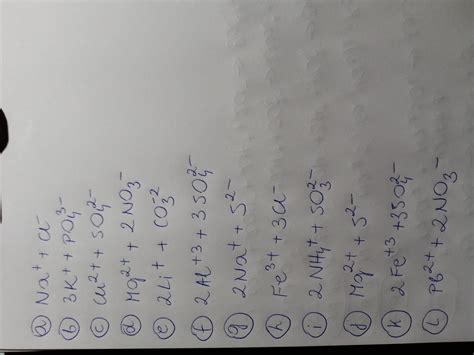 a) Na⁺ + Cl⁻
b) 3K⁺ + PO₄³⁻
c) Cu²⁺ + SO₄²⁻
d) Mg²⁺ + 2NO₃⁻
e) 2Li⁺ + CO₃⁻²
f) 2Al⁺³ + 3SO₄²⁻
g) 2Na⁺ + S²⁻
h) Fe³⁺ + 3Cl⁻
i) 2NH₄⁺ + SO₃²⁻
j) Mg²⁺ + S²⁻
k) 2Fe⁺³ + 3SO₄²⁻
l) Pb²⁺ + 2NO₃⁻